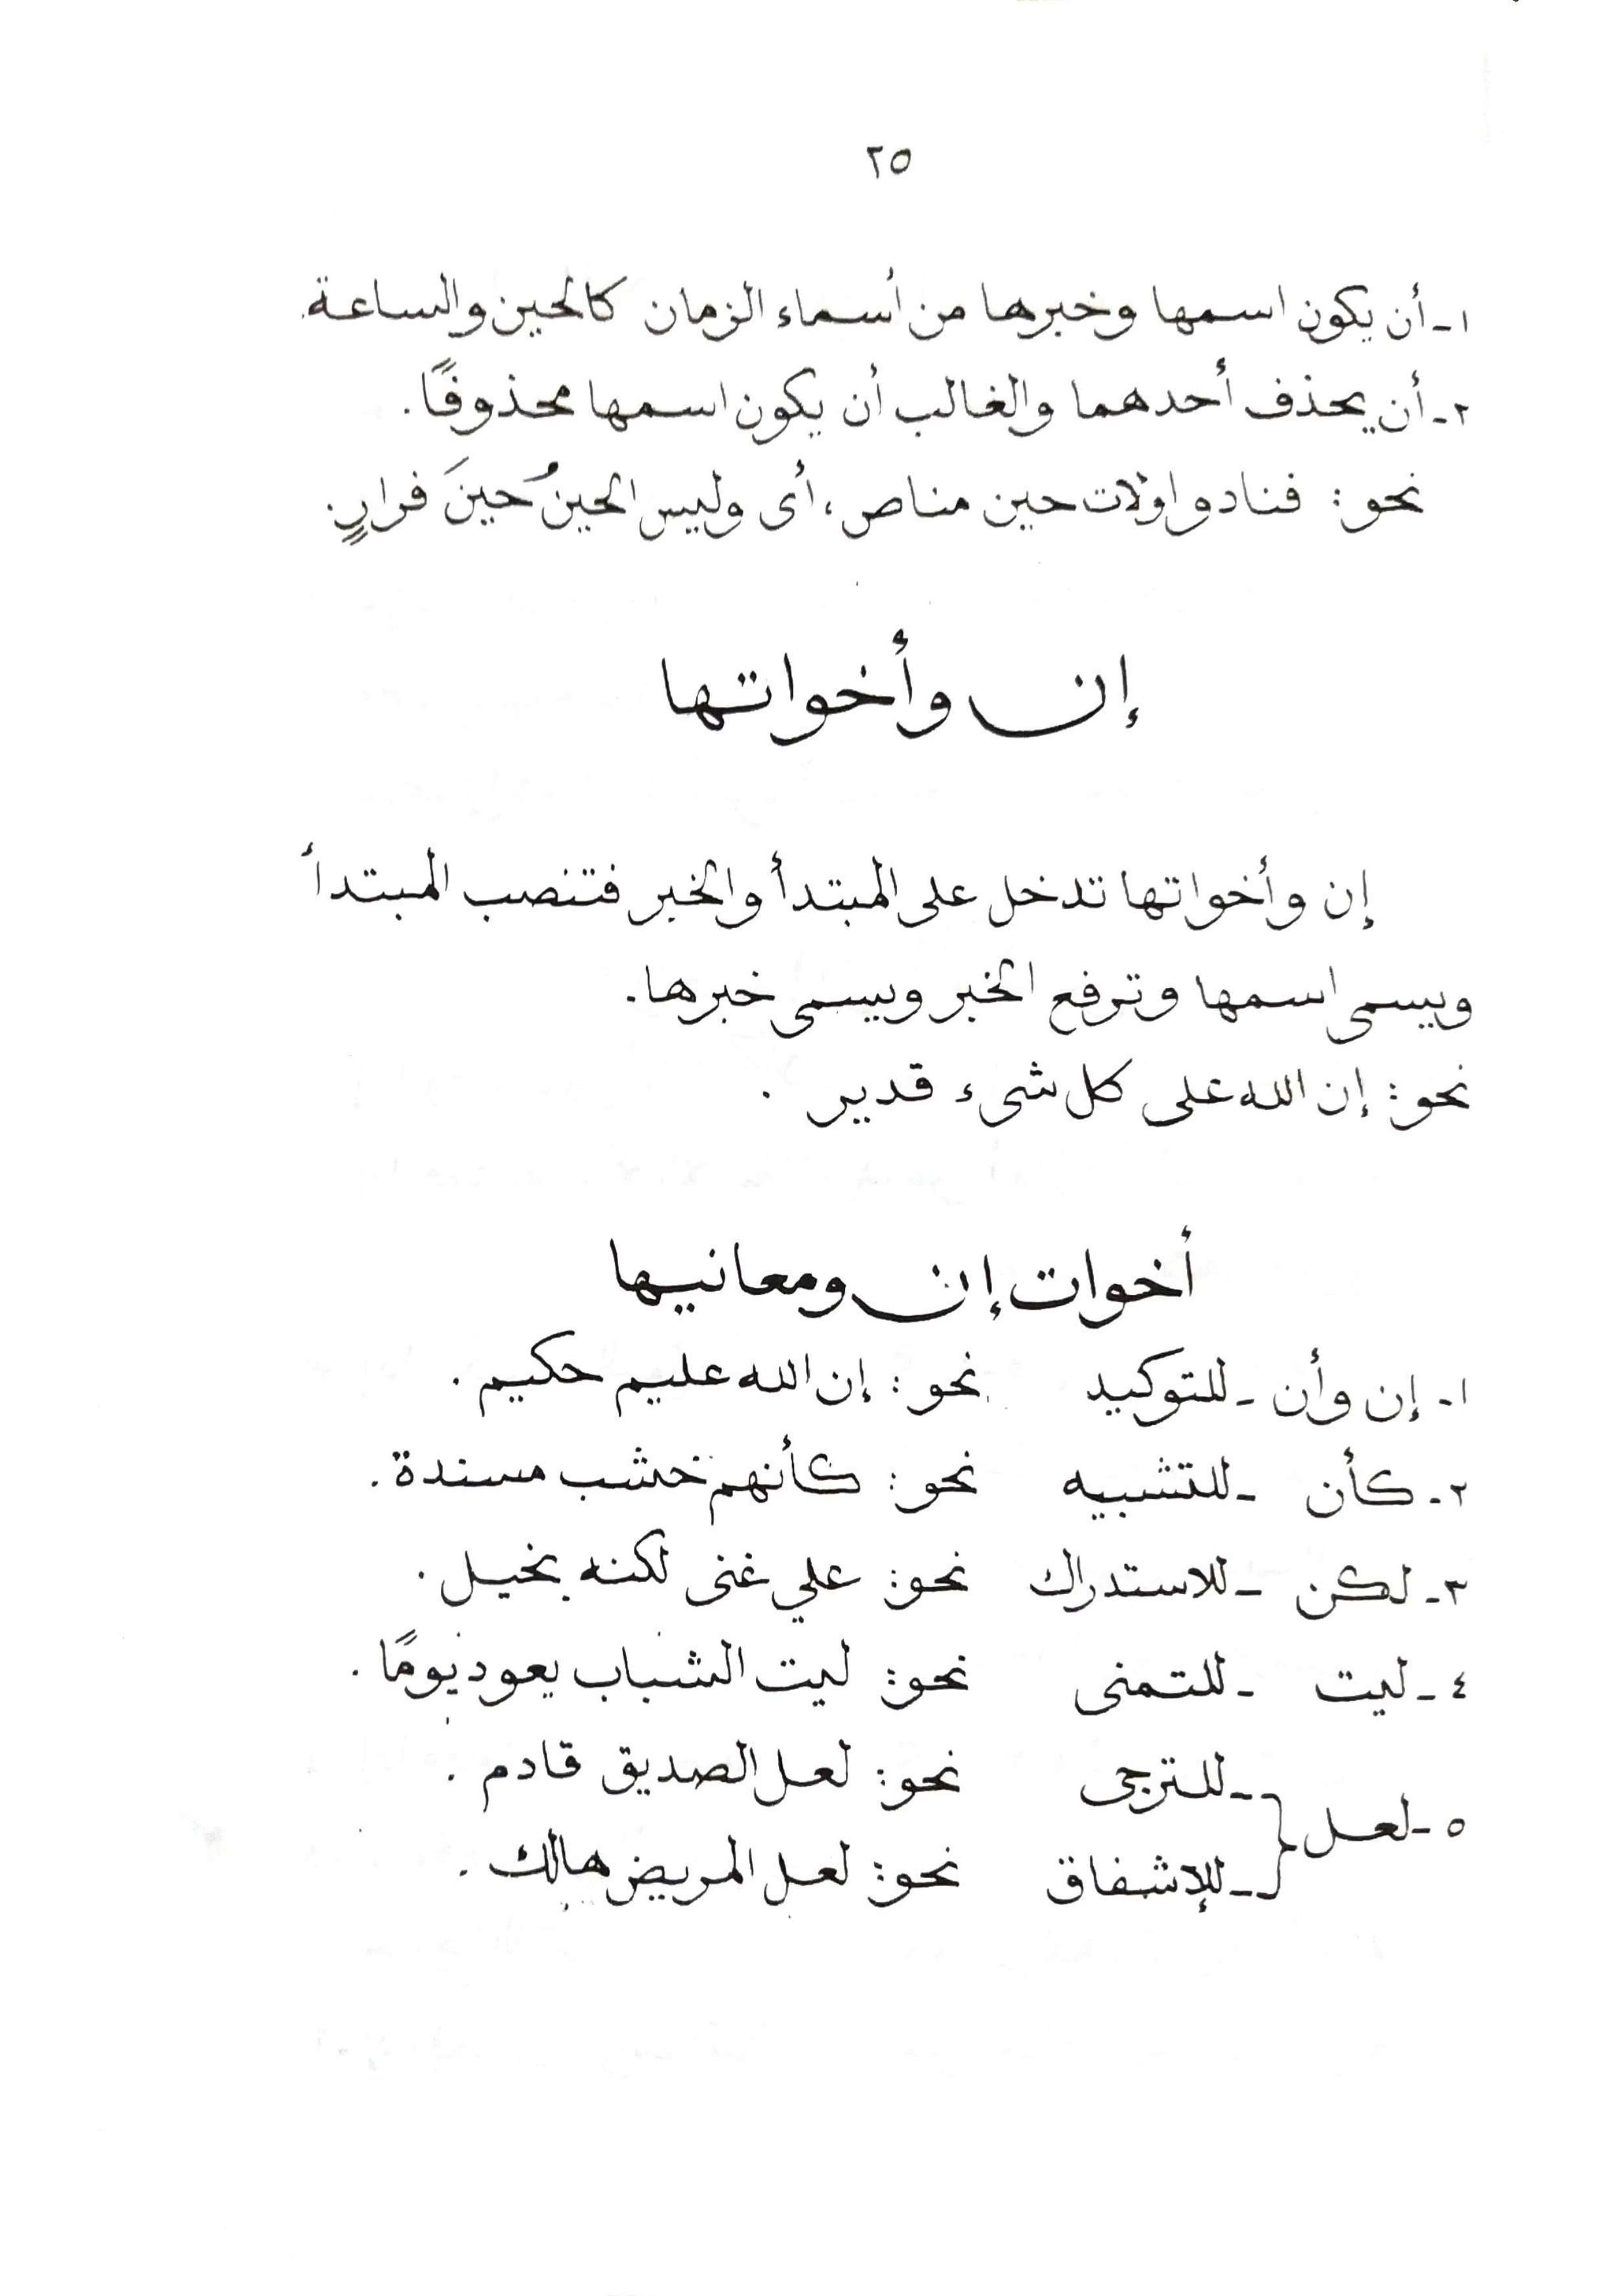 ٢٥
١- أن يكون اسمها وخبرها من أسماء الزمان كالحين والساعة.
٢- أن يحذف أحدهما والغالب أن يكون اسمها محذوفًا.
نحو: فنادوا ولات حين مناص، أى وليس الحينُ حينَ فرارٍ.
إن وأخواتها
إن وأخواتها تدخل على المبتدأ والخبر فتنصب المبتدأ
ويسمى اسمها وترفع الخبر ويسمى خبرها.
نحو: إن الله على كل شىء قدير .
أخوات إن ومعانيها
١- إن وأن - للتوكيد نحو: إن الله عليم حكيم.
٢- كأن - للتشبيه نحو: كأنهم خشب مسندة.
٣- لكن - للاستدراك نحو: علي غنى لكنه بخيل.
٤- ليت - للتمنى نحو: ليت الشباب يعود يومًا.
٥- لعل { - للترجى نحو: لعل الصديق قادم.
- للإشفاق نحو: لعل المريض هالك.